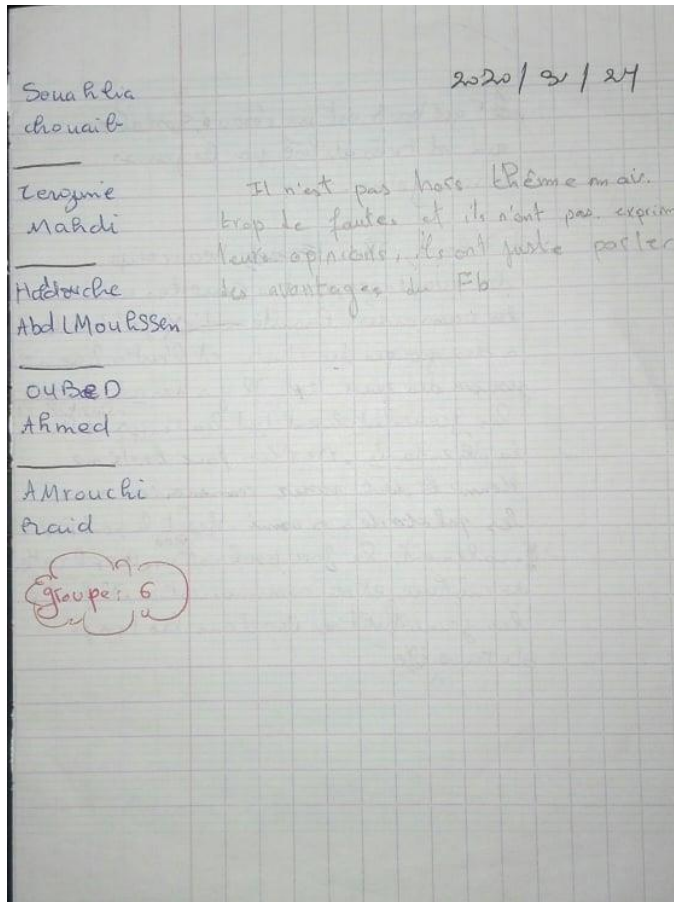 2020/3/24
Souahlia
chouaib
Zerguine
Mahdi
Haddouche
Abdl Mouhssen
OUBeD
Ahmed
AMrouchi
Raid
groupe: 6
Il n'est pas hors thème mais
trop de fautes et ils n'ont pas exprim
leurs opinions, ils ont juste parler
des avantages du Fb